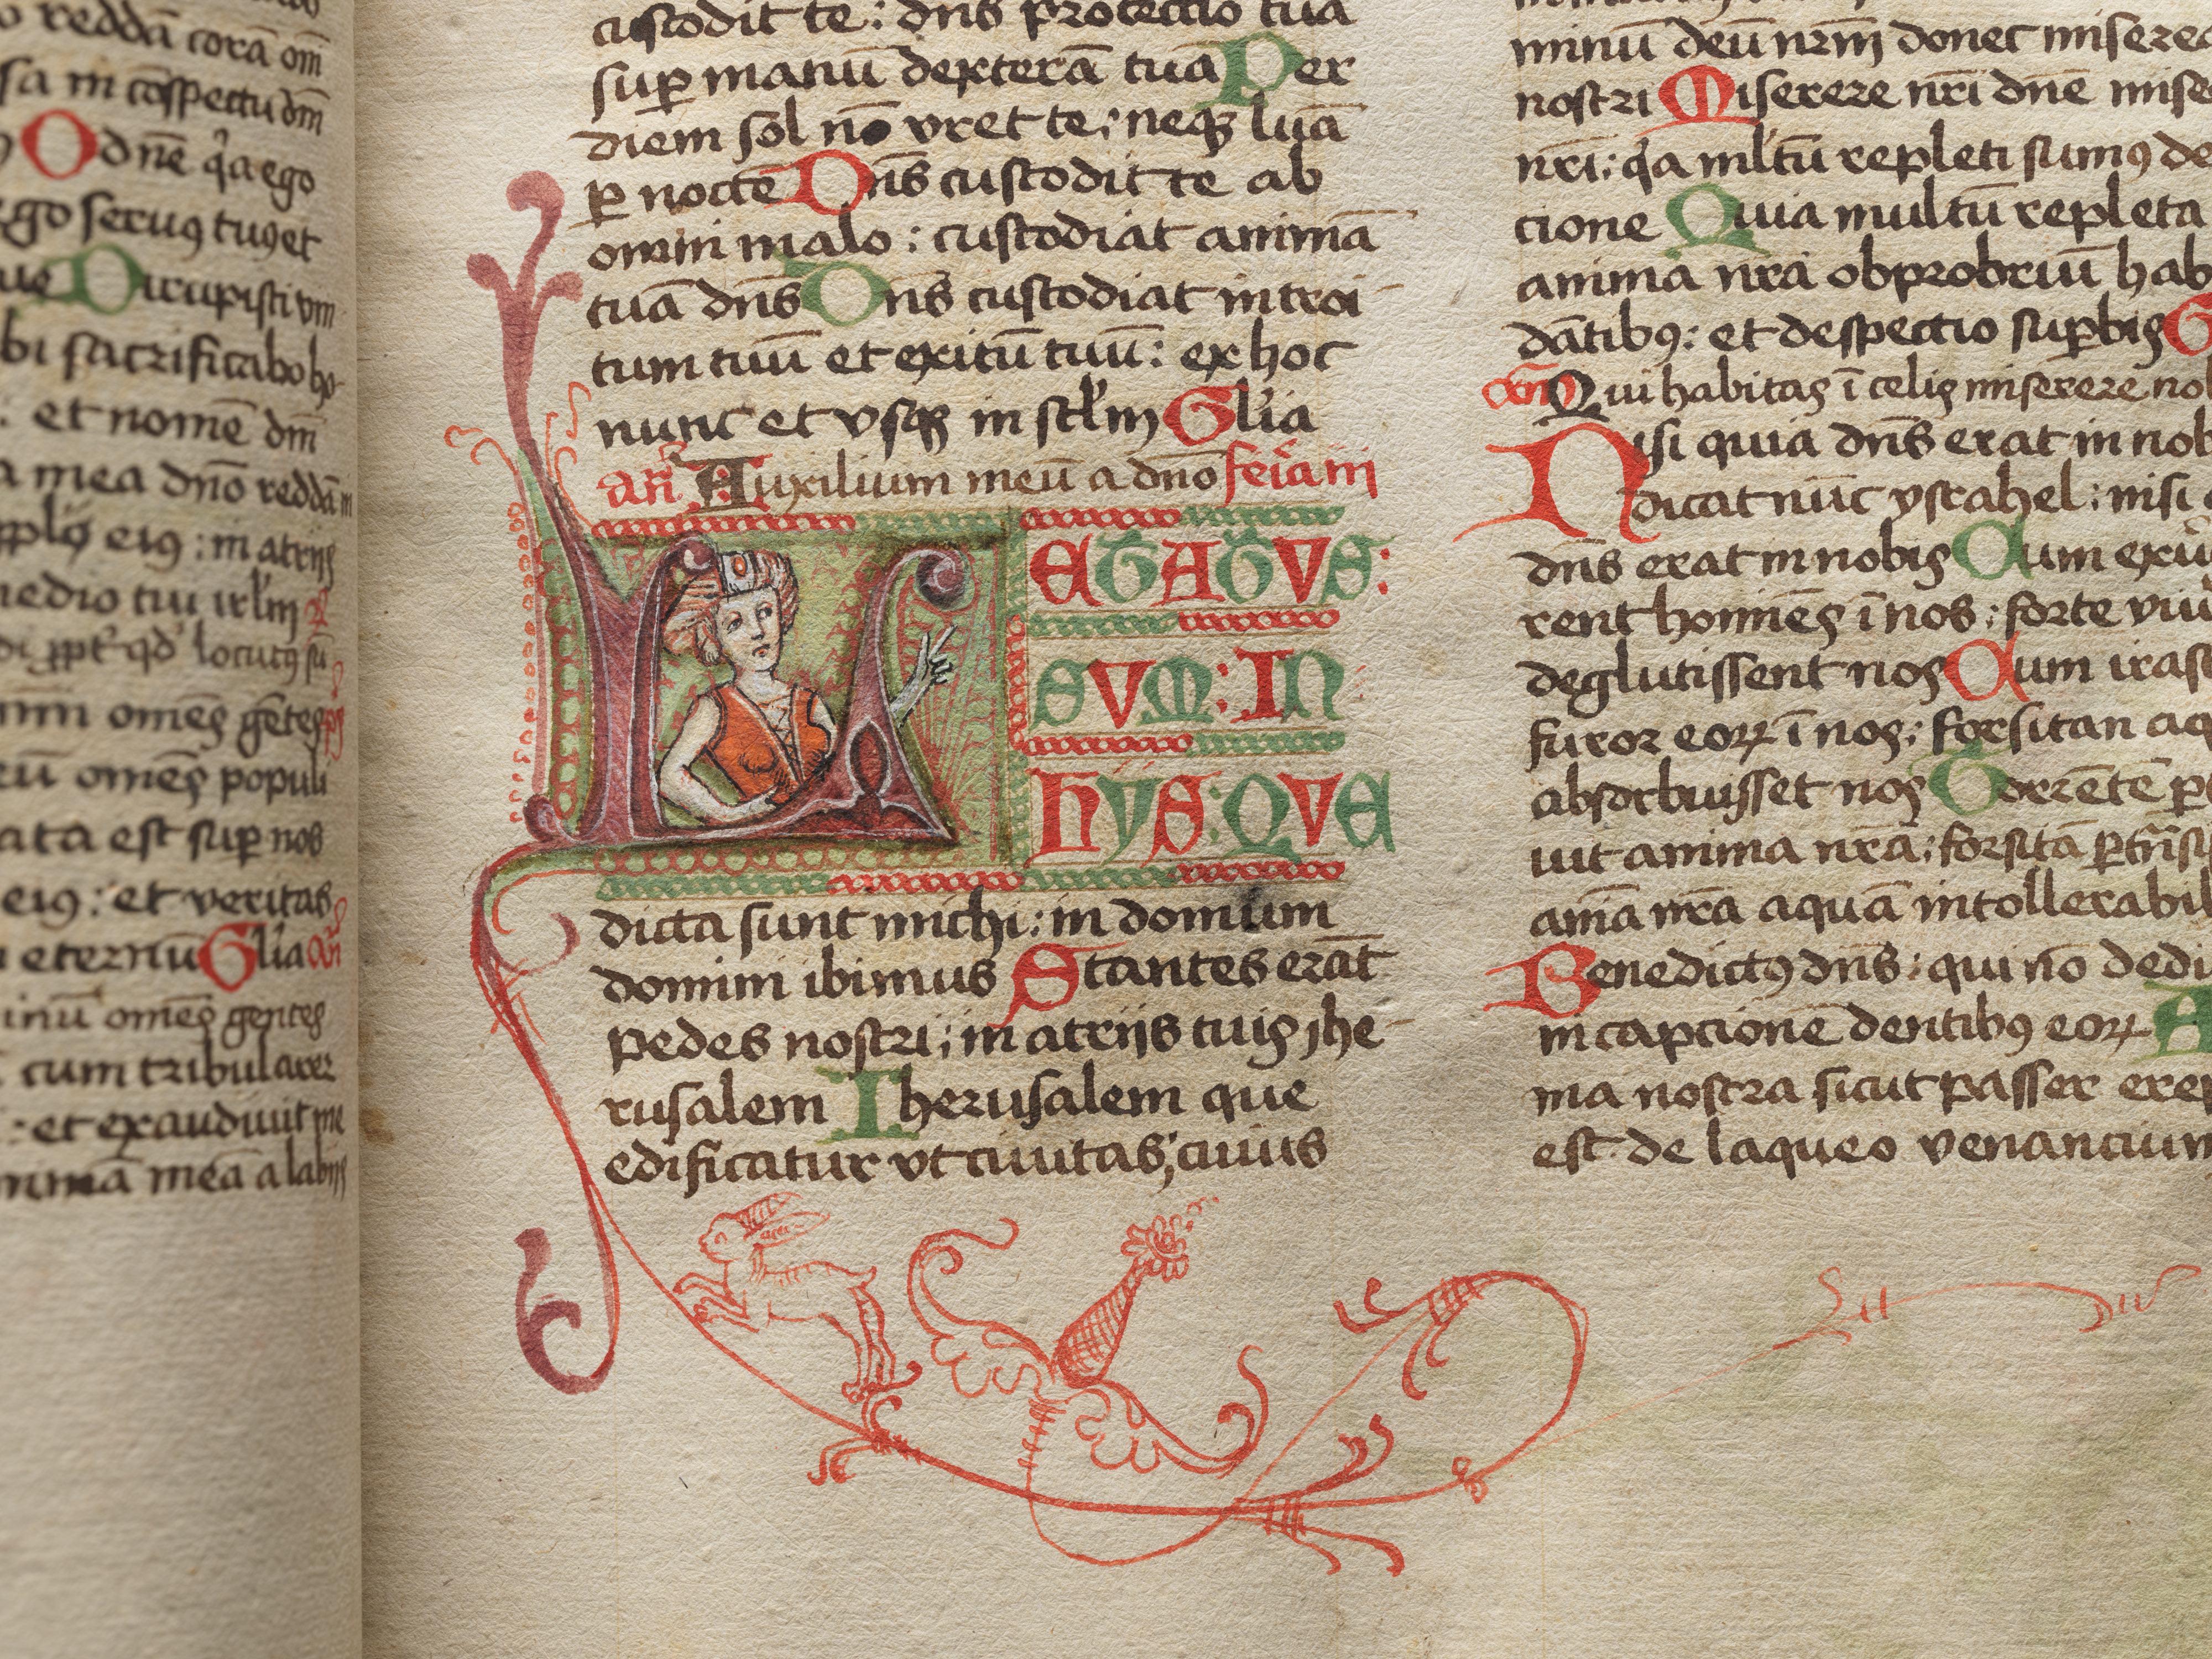 o reddā corā om̄
sa in cōspectu dm̄
O dn̄e qͥa ego
ego seruꝰ tuꝰ et
Dirupisti vin
bi sacrificabo ho-
: et nomē dm̄
a mea dn̄o reddā in
eiꝰ : in atrijs
medio tui irl'm
locutꝰ sū
omēs gētes
omēs populi
ata est sup̱ nos
eiꝰ : et veritas
eternū Gl'ia an̄
inū omēs gentes
cum tribularer
: et exaudiuit me
mea a labijs
custodit te : dn̄s protectio tua
sup̱ manū dexterā tuā Per
diem sol nō vret te : neqꝫ lunā
ꝑ noctē Dn̄s custodit te ab
omni malo : custodiat animā
tuā dn̄s Dn̄s custodiat introi-
tum tuū et exitū tuū : ex hoc
nunc et vsqꝫ in scl'm Gl'ia
an̄ Auxilium meū a dn̄o feria iii
LETATVS:
SVM: IN
HYS: QVE
dicta sunt michi : in domum
domini ibimus Stantes erāt
pedes nostri : in atrijs tuis jhe-
rusalem Iherusalem que
edificatur vt ciuitas : cuius
minū deū nr̄m donec miserea
nostri Miserere nr̄i dn̄e mise
nr̄i : qͥa ml'tū repleti sumꝰ de
cione Quia multū repleta
anima nr̄a obprobriū hab
dātibꝰ : et despectio sup̱bis G
an̄ Qui habitas ī celis miserere nob
Nisi quia dn̄s erat in nob
dicat nūc ysrahel : nisi
dn̄s erat in nobis Cum exur
rent homīes ī nos : forte viu
deglutissent nos Cum irasc
furor eoꝝ ī nos : forsitan aq
absorbuisset nos Torrētē p̱t
iuit anima nr̄a : forsitā p̱tͣnsi
aīa nr̄a aquā intollerabil
Benedictꝰ dn̄s : qui nō dedi
in capcionē dentibꝰ eoꝝ A
ma nostra sicut passer erep
est de laqueo venancium